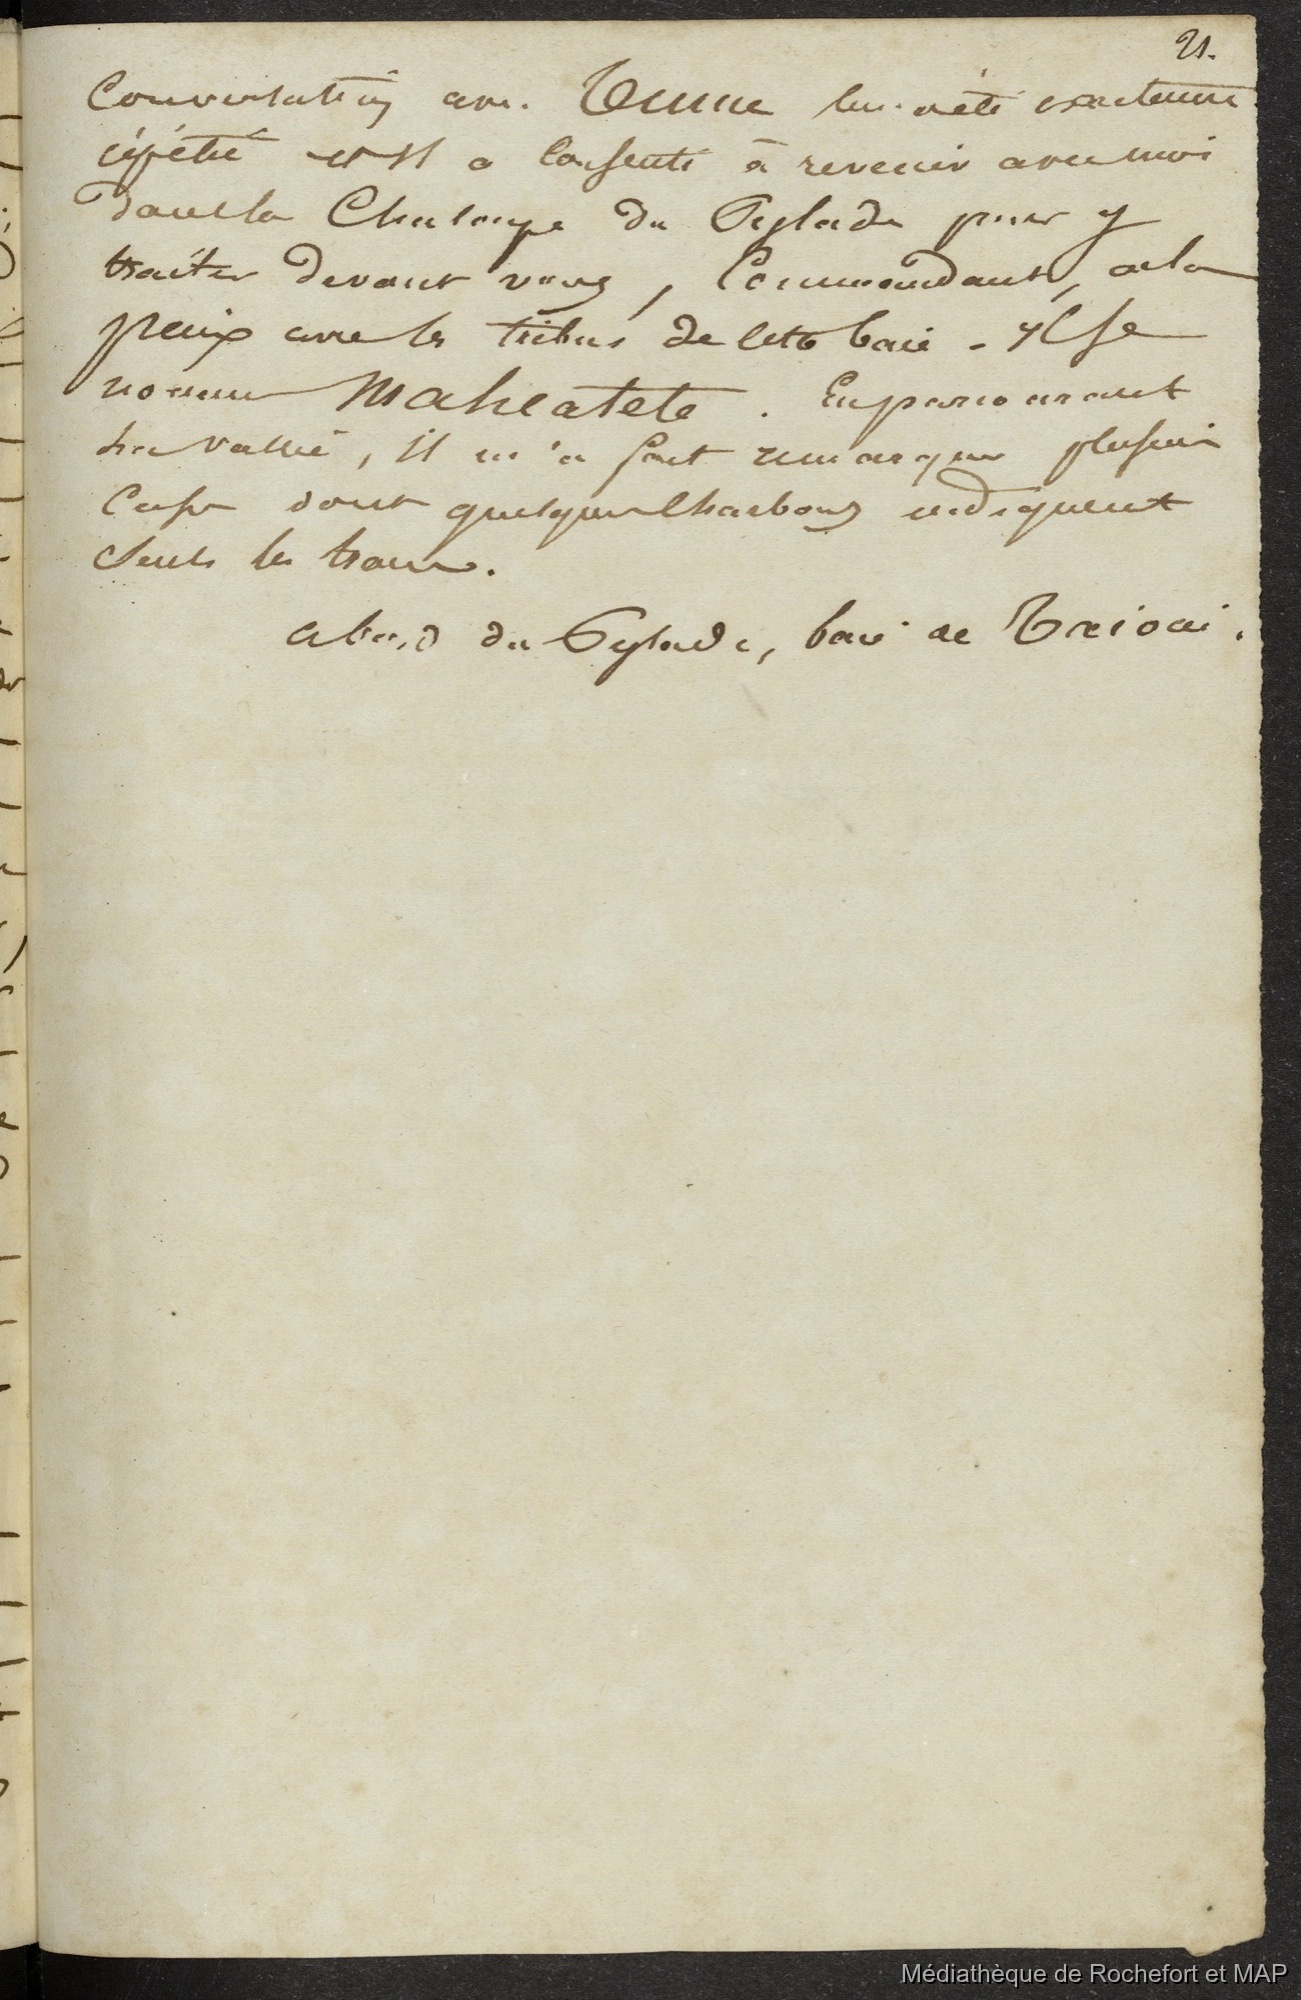 21.
Conversation avec Temue lui a été exactement
répétée et Il a Consenti à revenir avec moi
dans la Chaloupe du Pylade pour y
traiter devant vous, Commandant, de la
paix avec les tribus de cette baie - Il se
nomme Maheatete. En parcourant
la vallée, Il m'a fait remarquer plusieurs
Cases dont quelques Charbons indiquent
Seuls les traces.
A bord du Pylade, baie de Taiohai.
Médiathèque de Rochefort et MAP